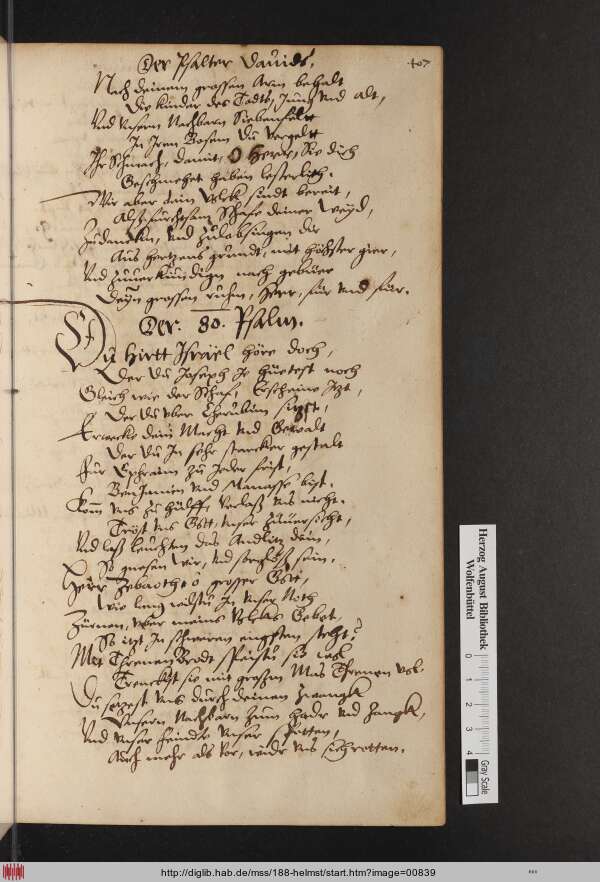 Der Psalter Dauids.
407
Nach deinem grossen Arm behalt
Die kinder des Todts, Jung vnd alt,
Vnd vnsern Nachbarn Siebenfalt
In Iren Bosem du vergelt
Ihr Schmach, damit, O Herr, Sie dich
Geschmehet haben lesterlich.
Wir aber dein Volck sindt bereit,
Alß furchtsam Schafe deiner Weyd,
Zudancken, vnd zulobsingen dir
Aus hertzens grundt, mit höhster gier,
Vnd zuuerkundigen nach gebuer
Deyn grossen ruhm, Herr, fur vnd fur.
Der. 80. Psalm.
Du Hirtt Israel höre doch,
Der du Joseph Je huetest noch
Gleich wie der Schaf, Erscheine Itzt,
Der du vber Cherubim sitzt,
Erwecke dein Macht vnd Gewalt
Der du In sehr starcker gestalt
Fur Ephraim zu Jeder frist,
BenJamin vnd Manasse bist.
Kom vns zu hulff, verlaß vns nicht.
Tröst vns Gott vnser zuuersicht,
Vnd laß leuchten das Andlitz dein,
So gnesen wir, vnd sorgloß sein.
Herr Zebaoth o großer Gott,
Wie lang wilstu In vnser Noth
Zürnen, vber meins Volckes Gebet,
So itzt In schweren engsten steht?
Met Threnen Brodt speistu sie
Trenckst sie mit großem Mas Threnen
Du setzest vns durch deinen zwangk
Vnsern Nachbarn zum hadr vnd zangk,
Vnd vnser feinde vnser spotten,
Auch mehr als vor, widr vns sich rotten.
Herzog August Bibliothek
Wolfenbüttel
0 1 2 3 4
Gray Scale
http://diglib.hab.de/mss/188-helmst/start.htm?image=00839